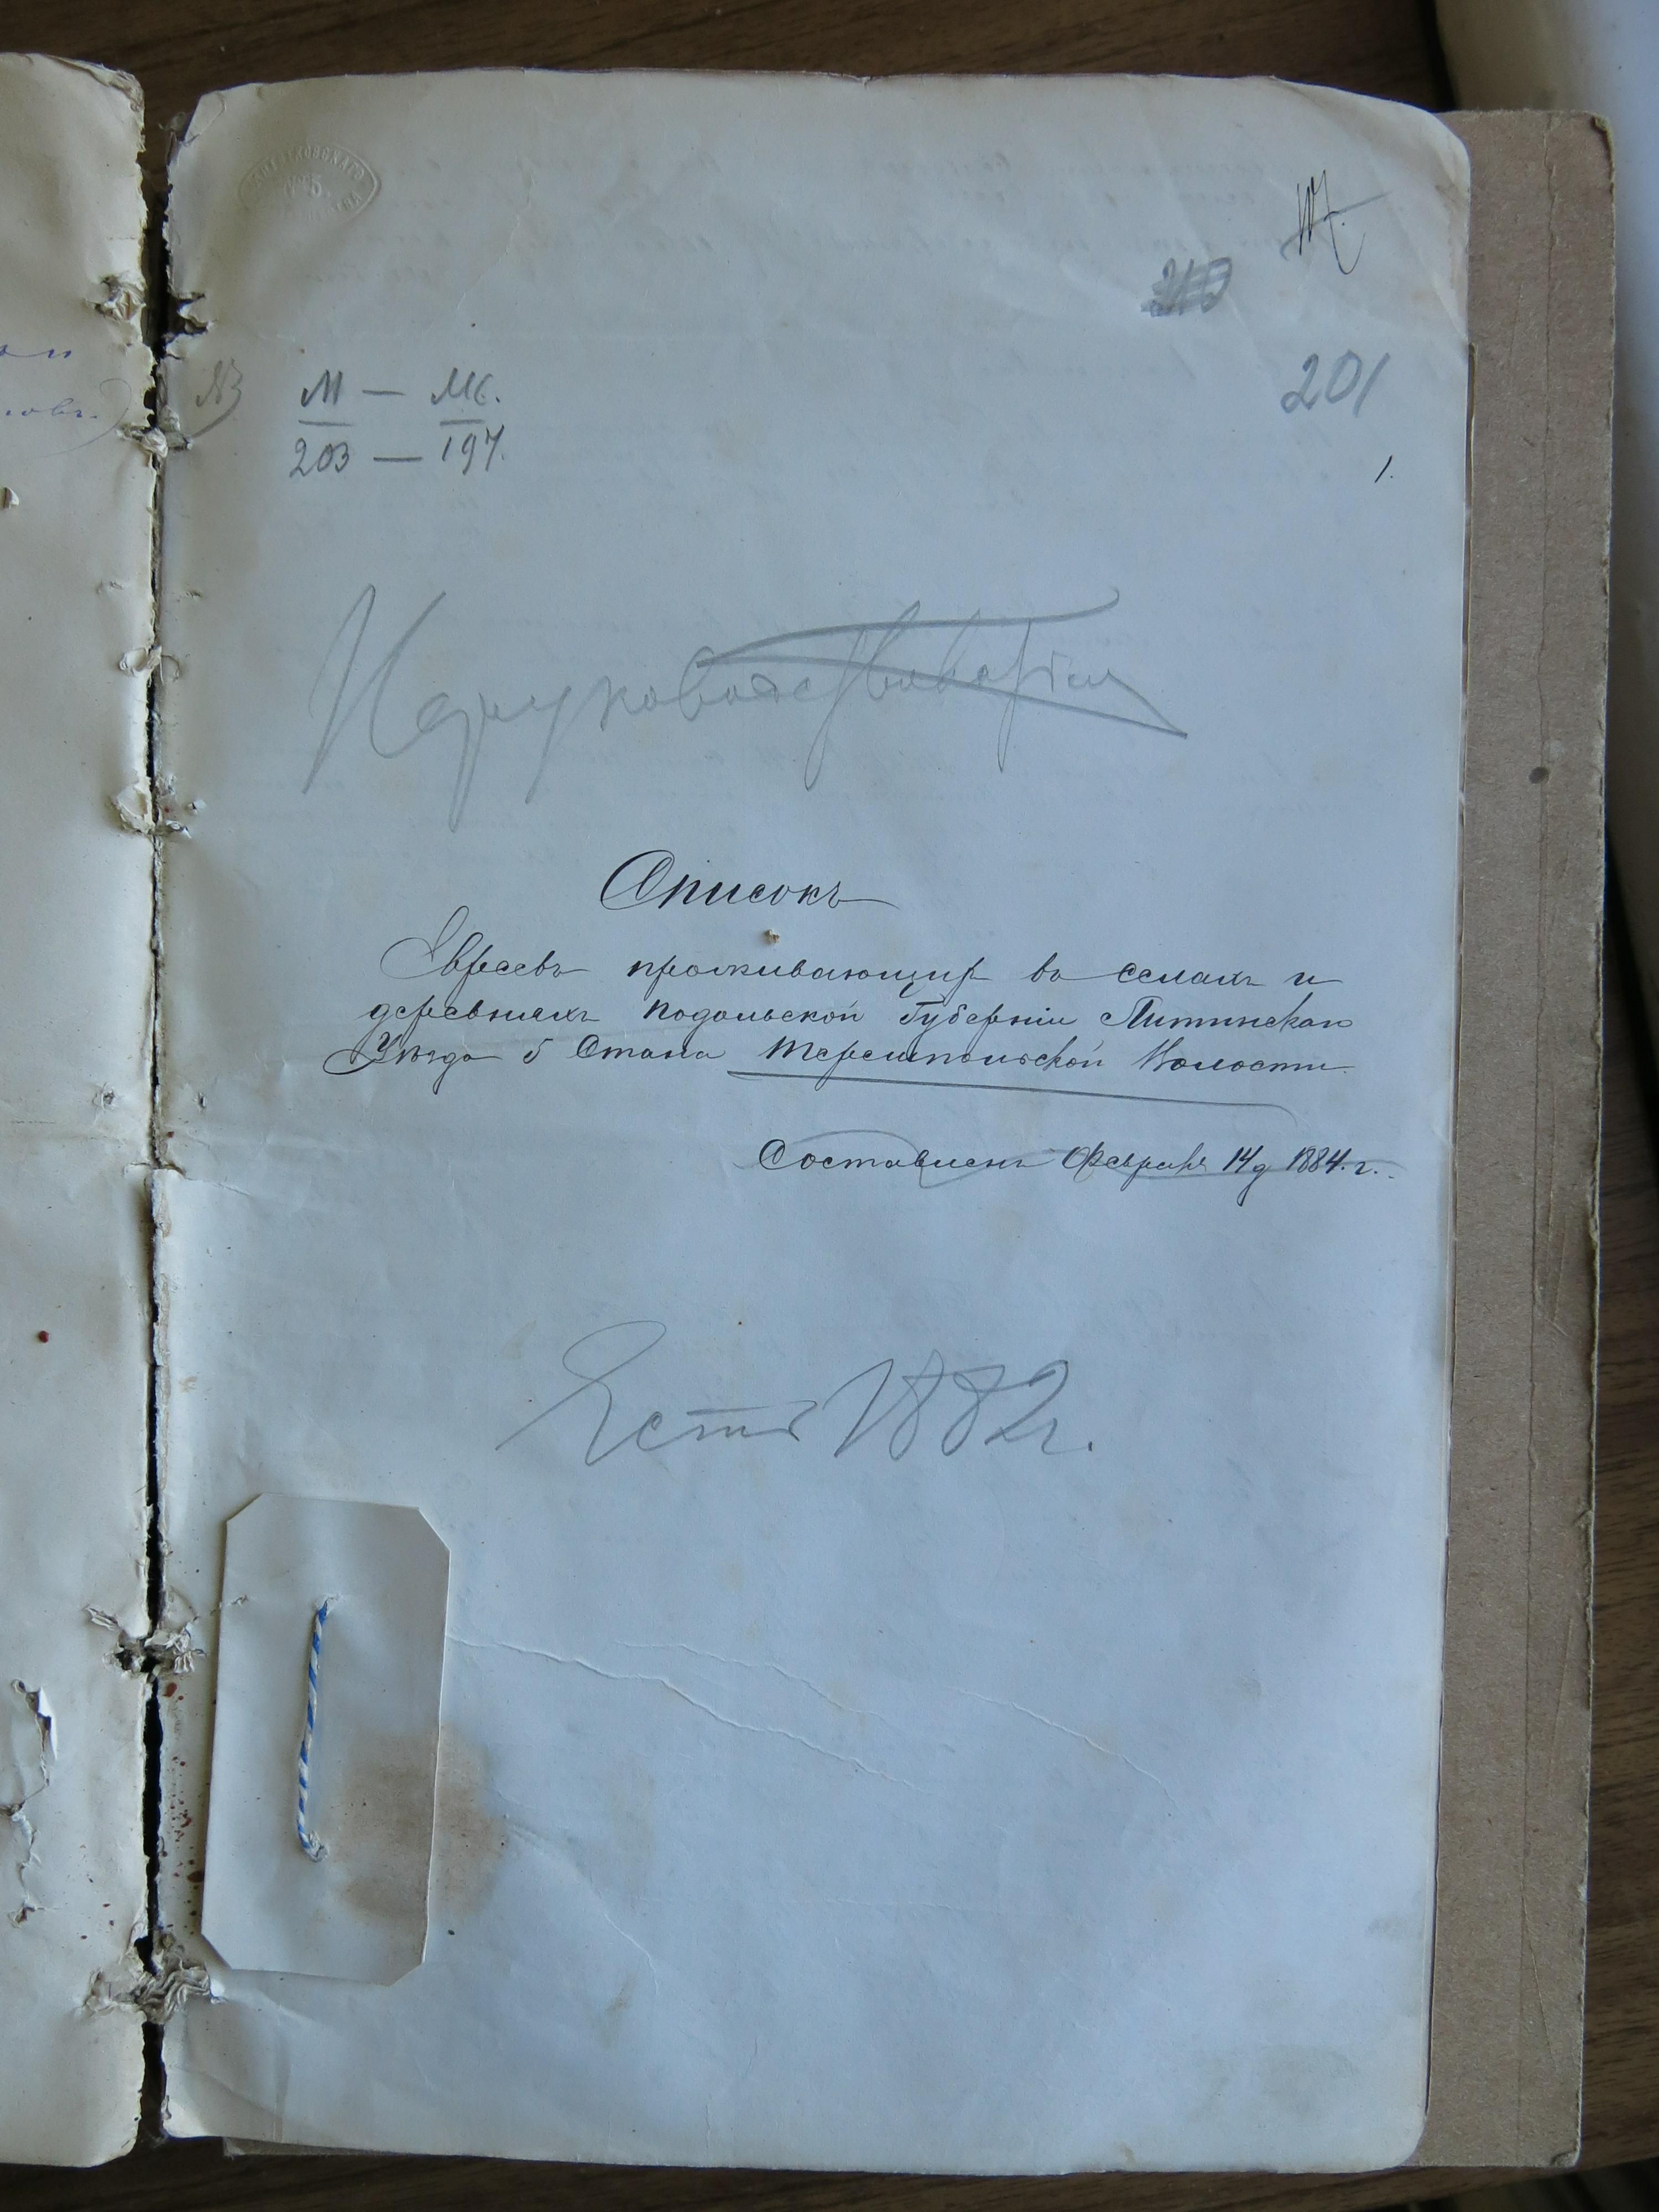 № 5.
201
М — МК.
203 — 197.
1.
Къ руководству
Списокъ
Евреевъ проживающихъ въ селахъ и
деревняхъ Подольской Губерніи Литинскаго
Уѣзда 5 Стана Терешпольской Волости
Составленъ Февраля 14 д 1884. г.
Есть 1882 г.